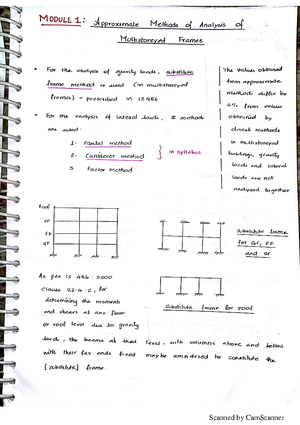 MODULE 1: Approximate Methods of Analysis of
Multistoreyed Frames
• For the analysis of gravity loads, substitute
frame method is used (in multistoreyed
frames) - prescribed in IS 456
• For the analysis of lateral loads, 3 methods
are used:
1. Portal method
2. Cantilever method
3. Factor method
} in syllabus
The values obtained
from approximate
methods differ by
6% from values
obtained by
direct methods
In multistoreyed
buildings, gravity
loads and lateral
loads are not
analysed together
Roof
FF
GF
Substitute frame
for GF, FF
and SF
As per IS 456 : 2000
Clause 22.4.2, for
determining the moments
and shears at any floor
or roof level due to gravity
loads, the beams at that level, with columns above and below
with their far ends fixed may be considered to constitute the
[substitute] frame.
Substitute frame for roof
Scanned by CamScanner